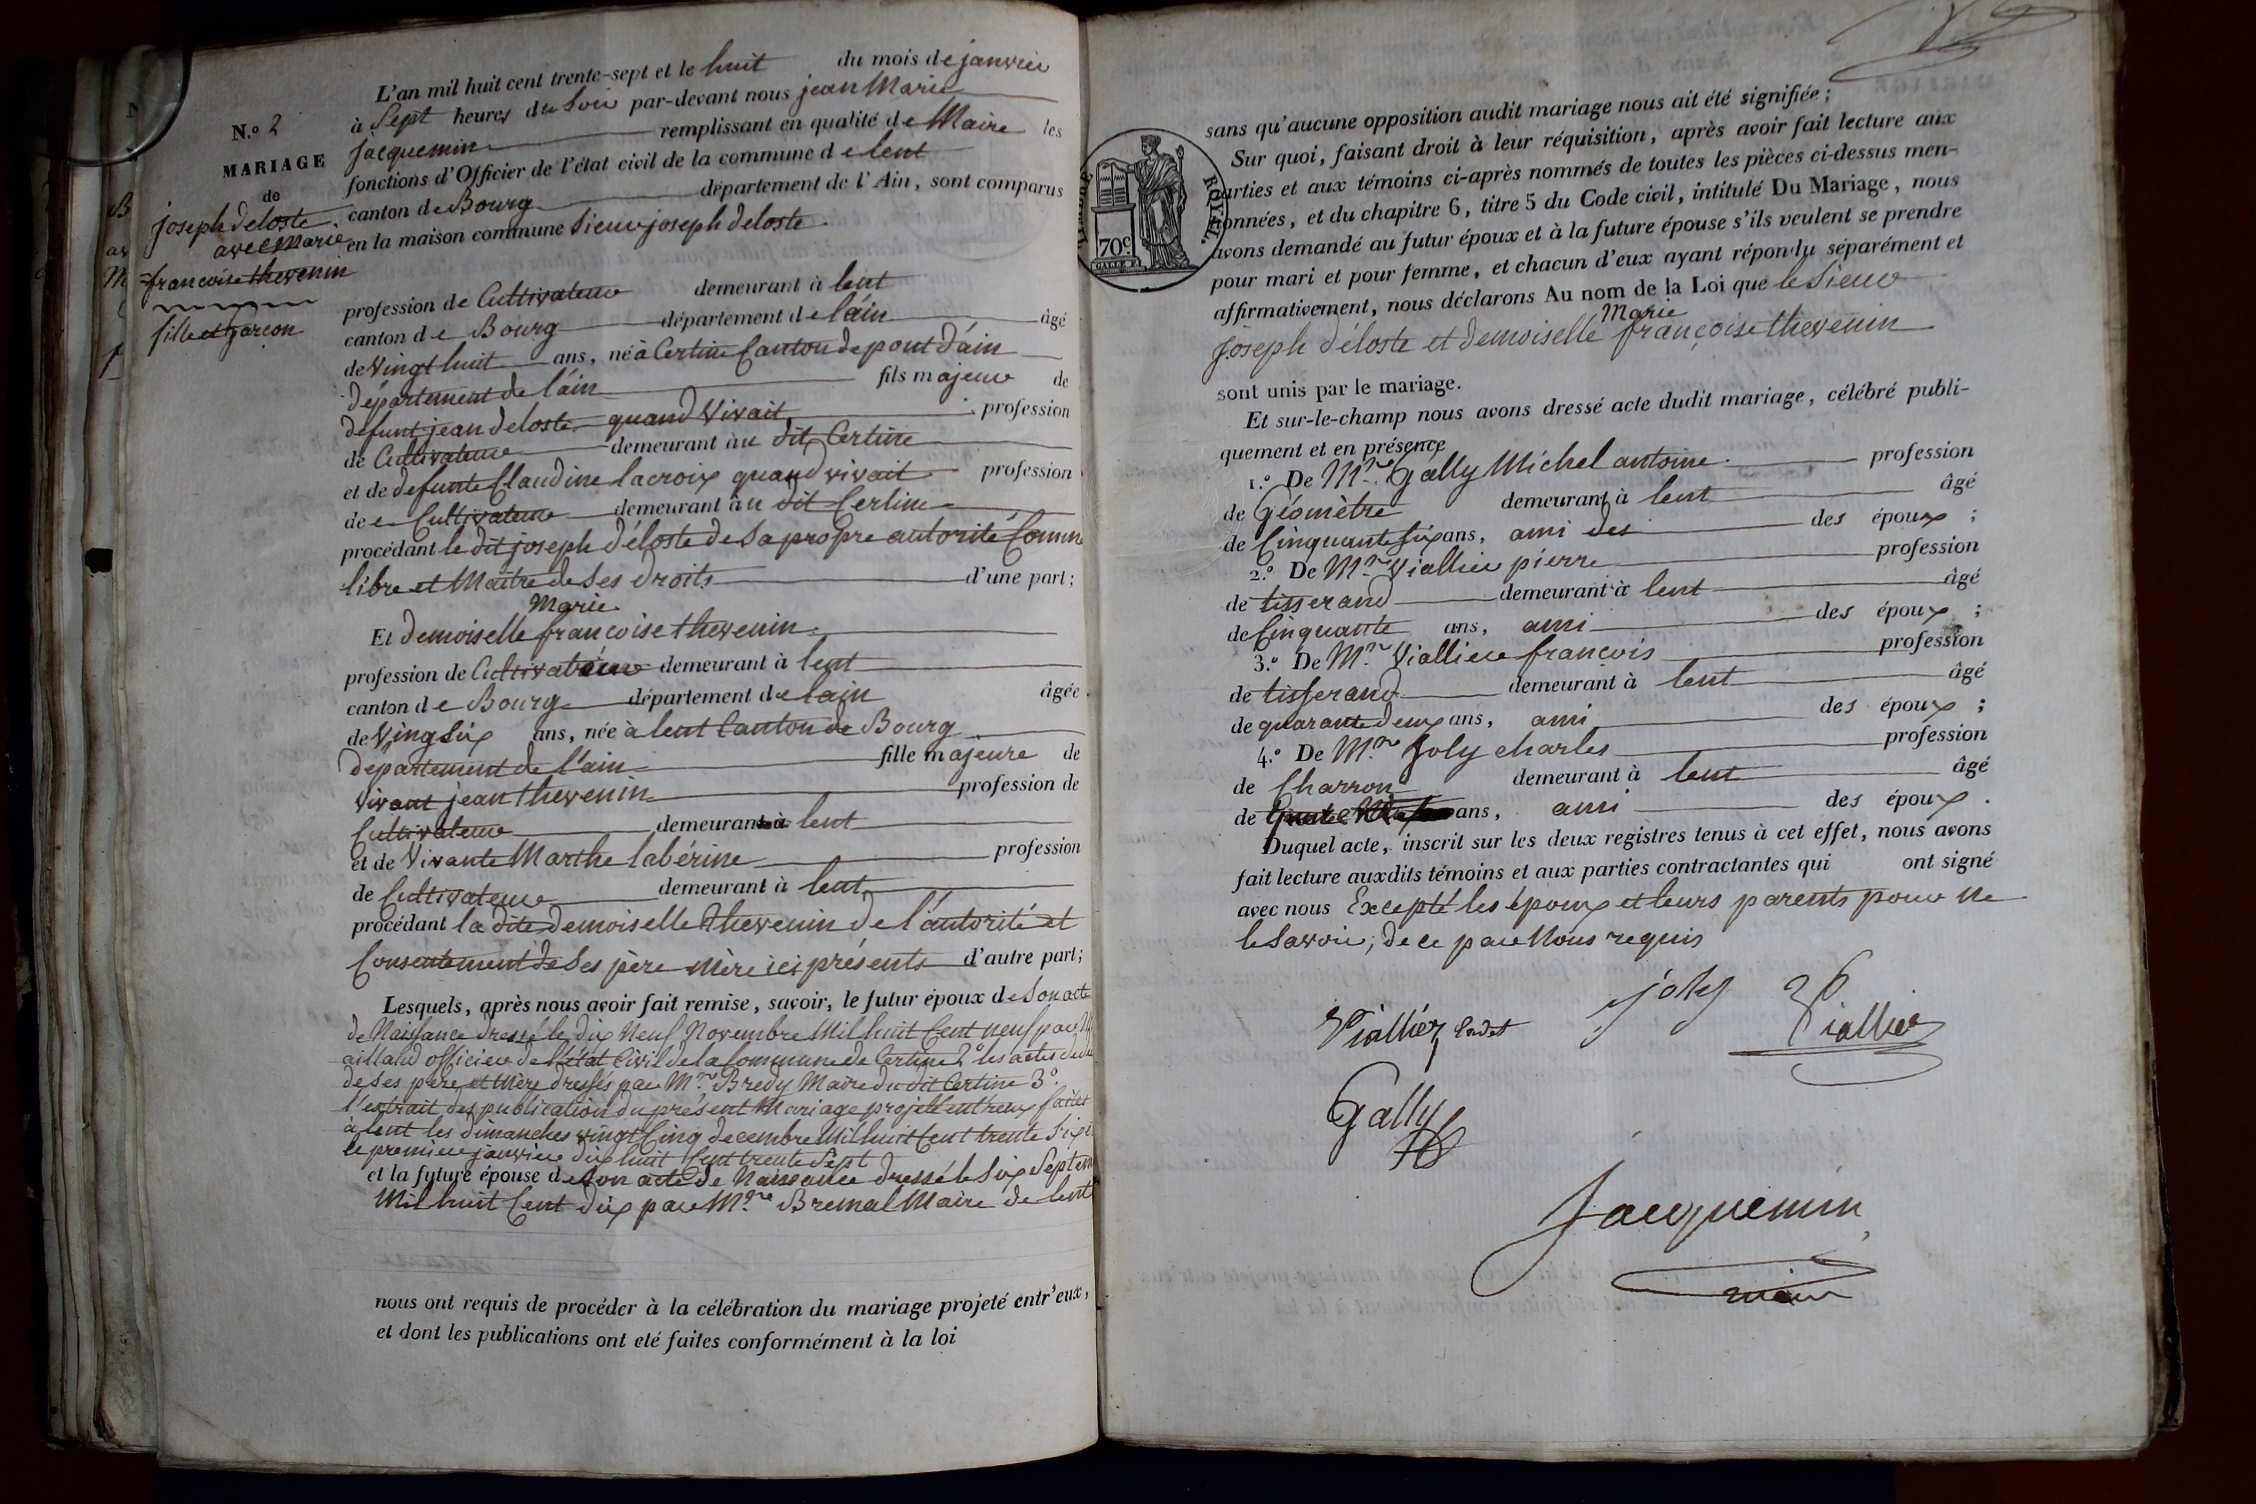 N.º 2
MARIAGE
de
joseph deloste
avec Marie
françoise thevenin
fille et garcon
L'an mil huit cent trente-sept et le huit du mois de janvier
à Sept heures du Soir par-devant nous jean Marie
jacquemin remplissant en qualité de Maire les
fonctions d'Officier de l'état civil de la commune de lent
canton de Bourg département de l'Ain, sont comparus
en la maison commune Sieur joseph deloste
profession de Cultivateur demeurant à lent
canton de Bourg département de láin âgé
de Vingt huit ans, né à Certine Canton de pont d'ain
département de láin fils majeur de
defunt jean deloste quand Vivait profession
de Cultivateur demeurant au dit Certine
et de defunte Claudine lacroix quand vivait profession
de Cultivateur demeurant au dit Certine
procédant le dit joseph déloste de Sa propre autorité Comme
libre et Maitre de Ses droits d'une part;
Marie
Et demoiselle françoise thevenin
profession de Cultivateur demeurant à lent
canton de Bourg département de lain âgée
de Vingsix ans, née à lent Canton de Bourg
département de l'ain fille majeure de
Vivant jean thevenin profession de
Cultivateur demeurant à lent
et de Vivante Marthe labérine profession
de Cultivateur demeurant à lent
procédant la dite demoiselle thevenin de l'autorité et
Consentement de Ses père mère ici présents d'autre part;
Lesquels, après nous avoir fait remise, savoir, le futur époux de Son acte
de Naissance dressé le dix Neuf Novembre Mil huit Cent neuf par
officier de l'état Civil de la Commune de Certine 2º les actes
de Ses père et Mère dressés par Mr Bredy Maire du dit Certine 3º
l'extrait des publication du présent Mariage projetté entreux faites
à lent les dimanches vingt Cinq decembre Mil huit Cent trente Six
le premier janvier dix huit Cent trente Sept
et la future épouse de Son acte de Naissance dressé le Six Septem
Mil huit Cent dix par Mr Bremal Maire de lent
nous ont requis de procéder à la célébration du mariage projeté entr'eux,
et dont les publications ont été faites conformément à la loi
TIMBRE ROYAL
70 c.
sans qu'aucune opposition audit mariage nous ait été signifiée;
Sur quoi, faisant droit à leur réquisition, après avoir fait lecture aux
parties et aux témoins ci-après nommés de toutes les pièces ci-dessus men-
ionnées, et du chapitre 6, titre 5 du Code civil, intitulé Du Mariage, nous
avons demandé au futur époux et à la future épouse s'ils veulent se prendre
pour mari et pour femme, et chacun d'eux ayant répondu séparément et
affirmativement, nous déclarons Au nom de la Loi que le Sieur
Marie
Joseph déloste et demoiselle françoise thevenin
sont unis par le mariage.
Et sur-le-champ nous avons dressé acte dudit mariage, célébré publi-
quement et en présence
1.º De Mr Gally Michel antoine profession
de Géomètre demeurant à lent âgé
de Cinquante Six ans, ami des des époux;
2.º De Mr Viallier pierre profession
de tisserand demeurant à lent âgé
de Cinquante ans, ami des époux;
3.º De Mr Viallier françois profession
de tisserand demeurant à lent âgé
de quarante deux ans, ami des époux;
4.º De Mr Joly charles profession
de Charron demeurant à lent âgé
de ans, ami des époux.
Duquel acte, inscrit sur les deux registres tenus à cet effet, nous avons
fait lecture auxdits témoins et aux parties contractantes qui ont signé
avec nous Excepté les époux et leurs parents pour ne
le Savoir; de ce par Nous requis
joly
Viallier Cadet
Viallier
Gally
Jacquemin
maire